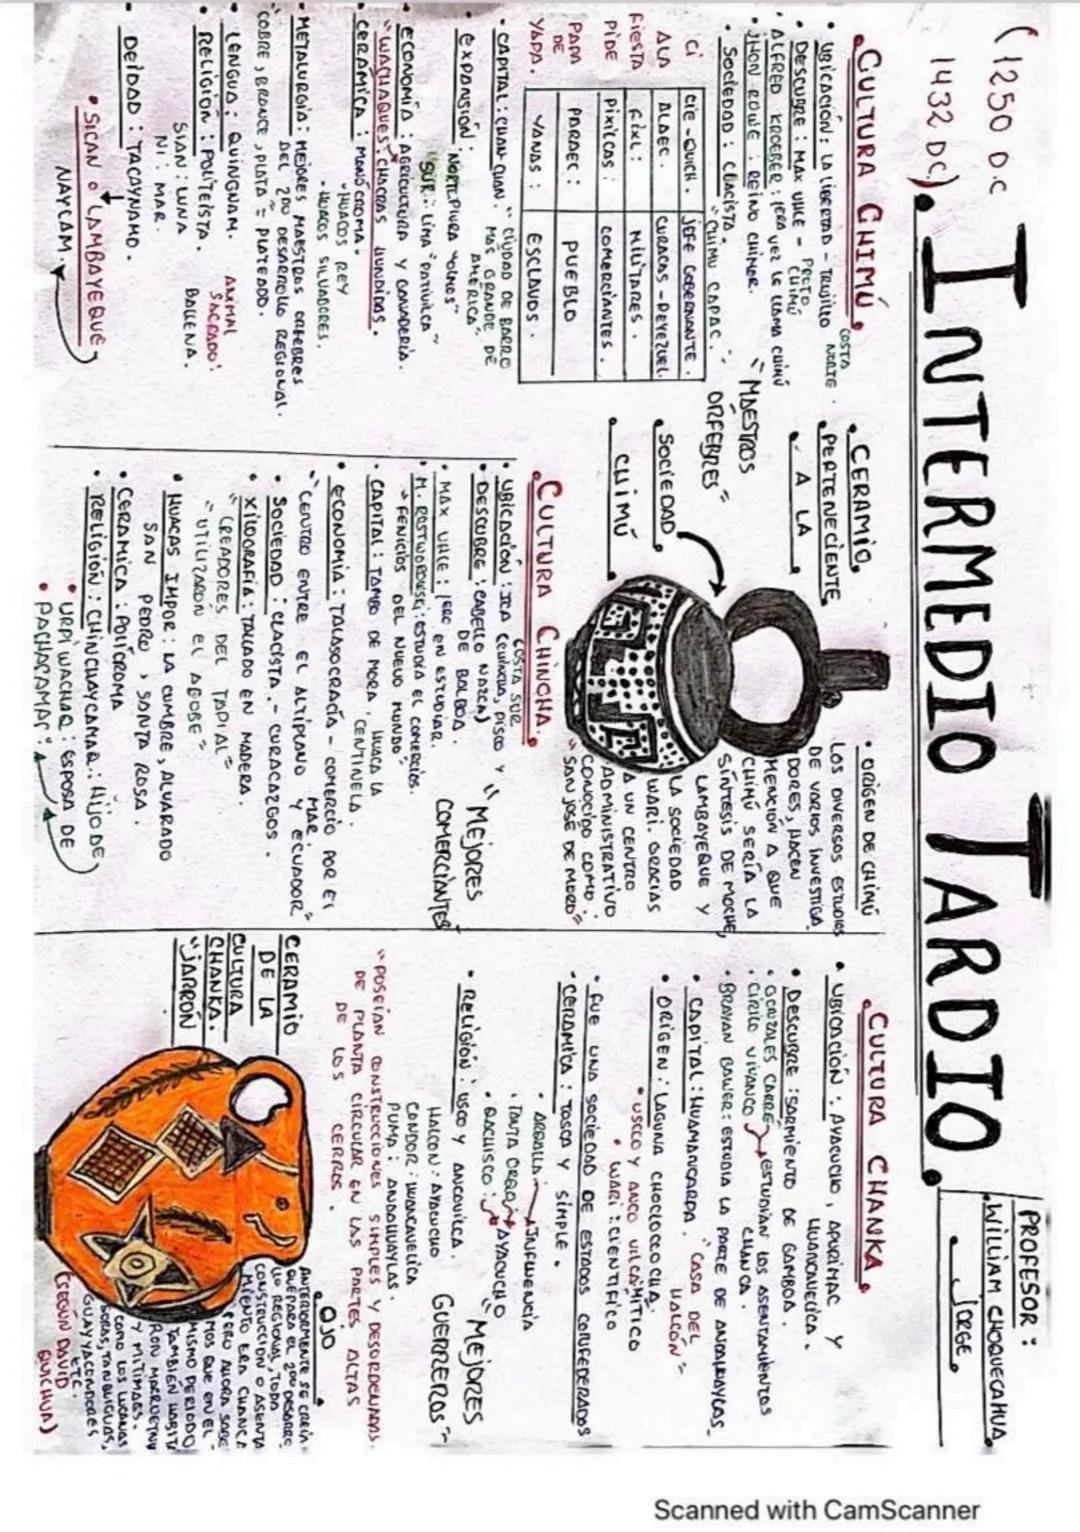 (1250 D.C
1432 DC).
INTERMEDIO TARDIO.
PROFESOR:
WILLIAM CHOQUECAHUA
JORGE
CULTURA CHIMÚ.
COSTA
NORTE.
• UBICACIÓN: LA LIBERTAD - TRUJILLO
• DESCUBRE: MAX UHLE - PROTO
CHIMÚ
ALFRED KROEBER: 1ERA VEZ LE LLAMA CHIMÚ
JHON ROWE: REINO CHIMOR.
• SOCIEDAD: CLACISTA.
"CHIMU CAPAC.
CI
CIE-QUICH. JEFE GOBERNANTE.
ALA
ALAEC. CURACAS-REYEZUEL.
FIESTA
FIXL: MILITARES.
PIDE
PIXLLCAS: COMERCIANTES.
PAPA
PARAEC: PUEBLO
DE
YAPA.
YANAS: ESCLAVOS.
• CAPITAL: CHAN CHAN. "CIUDAD DE BARRO
MAS GRANDE DE
AMÉRICA"
EXPANSIÓN: NORTE
"SUR: LIMA "PATIVILCA"
• ECONOMÍA: AGRICULTURA Y GANADERIA.
"WACHAQUES: CHACRAS HUNDIDAS.
• CERAMICA: MONÓCROMA.
• HUACOS REY
• HUACOS SILVADORES.
• METALURGIA: MEJORES MAESTROS ORFEBRES
DEL 2DO DESARROLLO REGIONAL.
"COBRE, BRONCE, PLATA = PLATEADO.
• LENGUA: QUINGNAM.
• RELIGIÓN: POLITEÍSTA.
SIAN: LUNA
NI: MAR.
ANIMAL
SAGRADO:
BALLENA.
DEIDAD: TACAYNAMO.
• SICAN O LAMBAYEQUE
NAYCAM.
• CERAMIO
• PERTENECIENTE
• A LA
SOCIEDAD
CHIMÚ
"MAESTROS
ORFEBRES"
• ORIGEN DE CHIMÚ
LOS DIVERSOS ESTUDIOS
DE VARIOS INVESTIGA
DORES, HACEN
MENCIÓN A QUE
CHIMÚ SERÍA LA
SÍNTESIS DE MOCHE,
LAMBAYEQUE Y
LA SOCIEDAD
WARI. GRACIAS
A UN CENTRO
ADMINISTRATIVO
CONOCIDO COMO:
"SAN JOSÉ DE MORO"
CULTURA CHINCHA.
COSTA SUR
• UBICACIÓN: ICA (CHINCHA, PISCO Y
NAZCA)
• DESCUBRE: CABELLO
DE BALBOA.
• MAX UHLE: 1ERO EN ESTUDIAR.
M. ROSTWOROWSKI: ESTUDIA EL COMERCIOS.
FENICIOS DEL NUEVO MUNDO
"MEJORES
COMERCIANTES
• CAPITAL: TAMBO DE MORA, HUACA LA
CENTINELA.
• ECONOMIA: TALASOCRACÍA - COMERCIO POR EL
MAR
"CENTRO ENTRE EL ALTIPLANO Y ECUADOR"
• SOCIEDAD: CLACISTA.- CURACAZGOS.
• XILOGRAFÍA: TALLADO EN MADERA.
"CREADORES DEL TAPIAL"
"UTILIZARON EL ADOBE"
• HUACAS IMPOR: LA CUMBRE, ALVARADO
SAN PEDRO, SANTA ROSA.
• CERAMICA: POLICROMA
• RELIGIÓN: CHINCHAYCAMAR: HIJO DE
• URPI WACHAQ: ESPOSA DE
• PACHACAMAC"
CULTURA CHANKA.
• UBICACIÓN: AYACUCHO, APURIMAC Y
HUANCAVELICA.
• DESCUBRE: SARMIENTO DE GAMBOA.
• GONZALES CARRÉ
• CIRILO VIVANCO
ESTUDIAN LOS ASENTAMIENTOS
CHANCA.
• BRAYAN BAWER: ESTUDIA LA PARTE DE ANDAHUAYLAS
• CAPITAL: HUAMANCARPA. "CASA DEL
HALCÓN"
• ORIGEN: LAGUNA CHOCLOCOCHA.
• USCCO Y ANCO VILCA: MITICO
• WARI: CIENTIFICO
• FUE UNA SOCIEDAD DE ESTADOS CONFEDERADOS
• CERAMICA: TOSCA Y SIMPLE.
• ARQALLA
INFLUENCIA
• TANTA ORQO
• QACHISCO:
AYACUCHO
• RELIGIÓN: USCO Y ANCOVILCA.
"MEJORES
GUERREROS"
HALCON: AYACUCHO
CONDOR: HUANCAVELICA
PUMA: ANDAHUAYLAS.
"POSEÍAN CONSTRUCCIONES SIMPLES Y DESORDENADAS.
DE PLANTA CIRCULAR EN LAS PARTES ALTAS
DE LOS CERROS.
CERAMIO
DE LA
CULTURA
CHANKA.
"JARRÓN
OJO
ANTERIORMENTE SE CREÍA
QUE PARA EL 2DO DESARRO
LLO REGIONAL, TODA
CONSTRUCCIÓN O ASENTA
MIENTO ERA CHANCA
PERO AHORA SABE
MOS QUE EN EL
MISMO PERIODO
TAMBIÉN HABITA
RON
Y MITIMAS.
COMO LOS LUCANAS
SORAS, TANQUIGUAS,
GUAYACONDORES
ETC.
(SEGÚN DAVID
QUICHUA)
Scanned with CamScanner